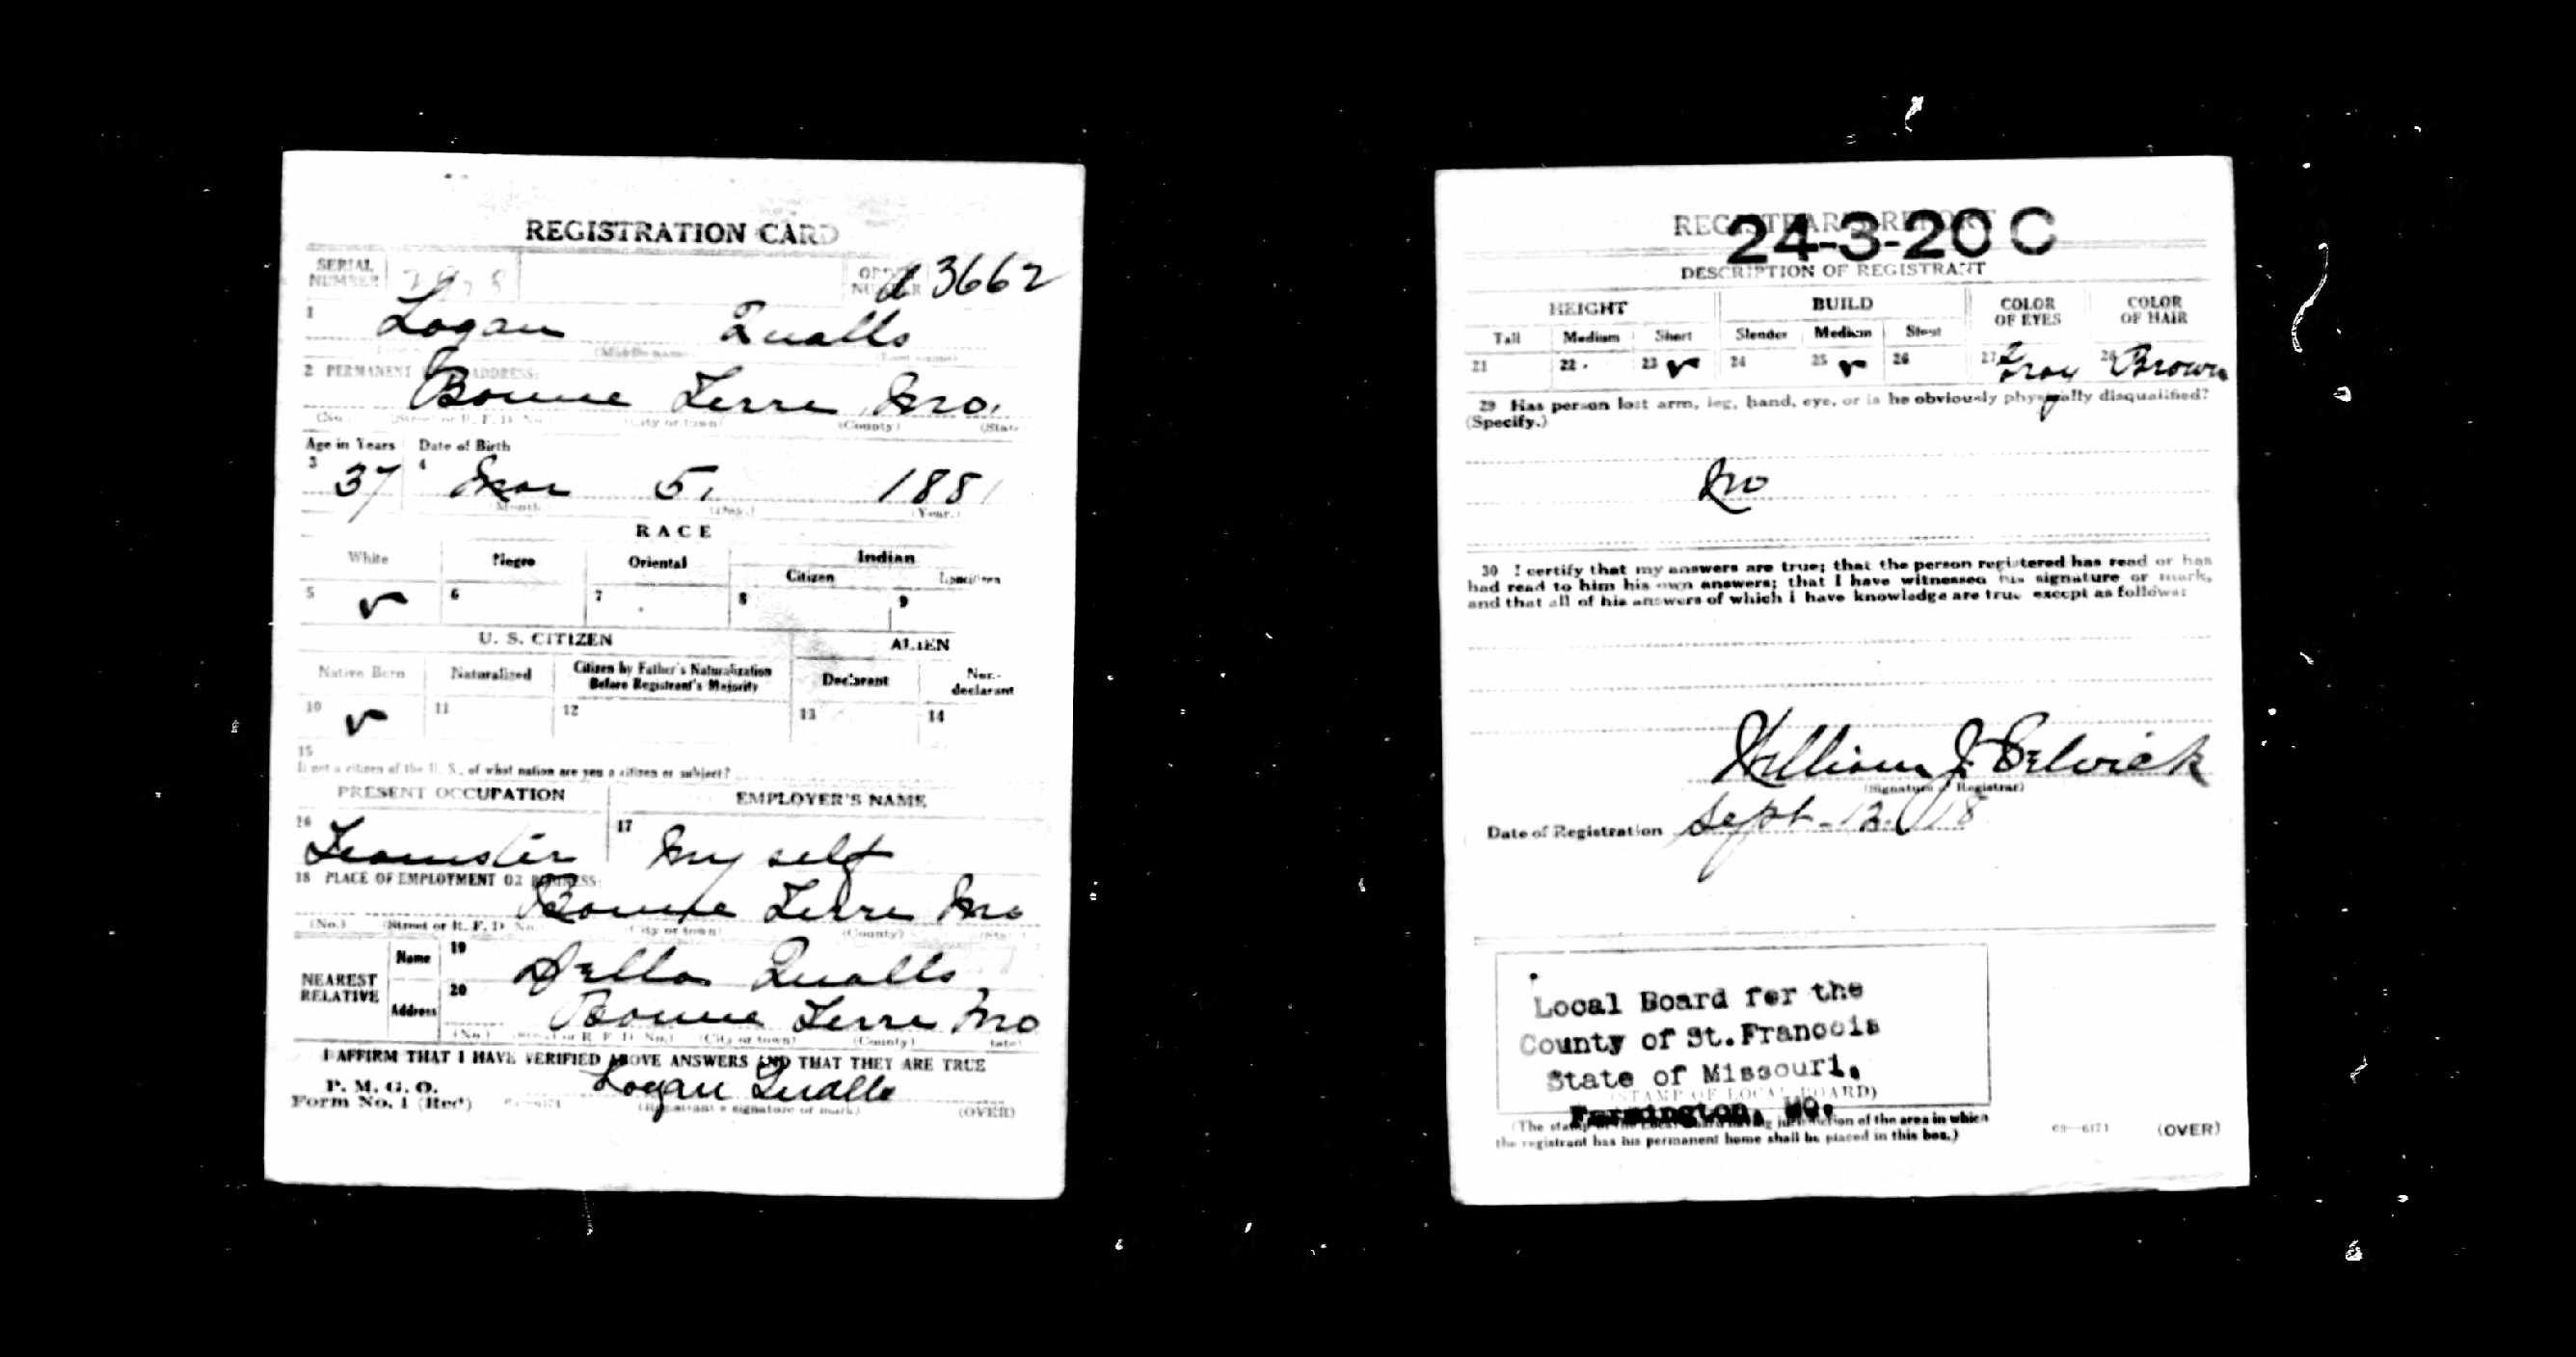 REGISTRATION CARD
SERIAL NUMBER
ORDER NUMBER A 3662
1 Logan Qualls
(Middle name) (Last name)
2 PERMANENT ADDRESS:
Bonne Terre Mo.
(No.) (Street or R. F. D. No.) (City or town) (County) (State)
Age in Years Date of Birth
3 37 4 Mar 5, 1881
(Month.) (Day.) (Year.)
RACE
White Negro Oriental Indian
Citizen Noncitizen
5 ✓ 6 7 8 9
U. S. CITIZEN ALIEN
Native Born Naturalized Citizen by Father's Naturalization Before Registrant's Majority Declarant Non-declarant
10 ✓ 11 12 13 14
15
If not a citizen of the U. S., of what nation are you a citizen or subject?
PRESENT OCCUPATION EMPLOYER'S NAME
16 Teamster 17 My self
18 PLACE OF EMPLOYMENT OR BUSINESS:
Bonne Terre Mo
(No.) (Street or R. F. D. No.) (City or town) (County) (State)
NEAREST RELATIVE
Name 19 Della Qualls
Address 20 Bonne Terre Mo
(No.) (Street or R. F. D. No.) (City or town) (County) (State)
I AFFIRM THAT I HAVE VERIFIED ABOVE ANSWERS AND THAT THEY ARE TRUE
P. M. G. O.
Form No. 1 (Red) Logan Qualls
(Registrant's signature or mark) (OVER)
REGISTRAR'S REPORT
24-3-20 C
DESCRIPTION OF REGISTRANT
HEIGHT BUILD COLOR OF EYES COLOR OF HAIR
Tall Medium Short Slender Medium Stout
21 22 23 ✓ 24 25 ✓ 26 27 Gray 28 Brown
29 Has person lost arm, leg, hand, eye, or is he obviously physically disqualified?
(Specify.)
No
30 I certify that my answers are true; that the person registered has read or has
had read to him his own answers; that I have witnessed his signature or mark,
and that all of his answers of which I have knowledge are true, except as follows:
William J.
(Signature of Registrar)
Date of Registration Sept. 12. 18
Local Board for the
County of St. Francois
State of Missouri.
(STAMP OF LOCAL BOARD)
Farmington, MO.
(The stamp of the Local Board having jurisdiction of the area in which
the registrant has his permanent home shall be placed in this box.)
63—6171 (OVER)